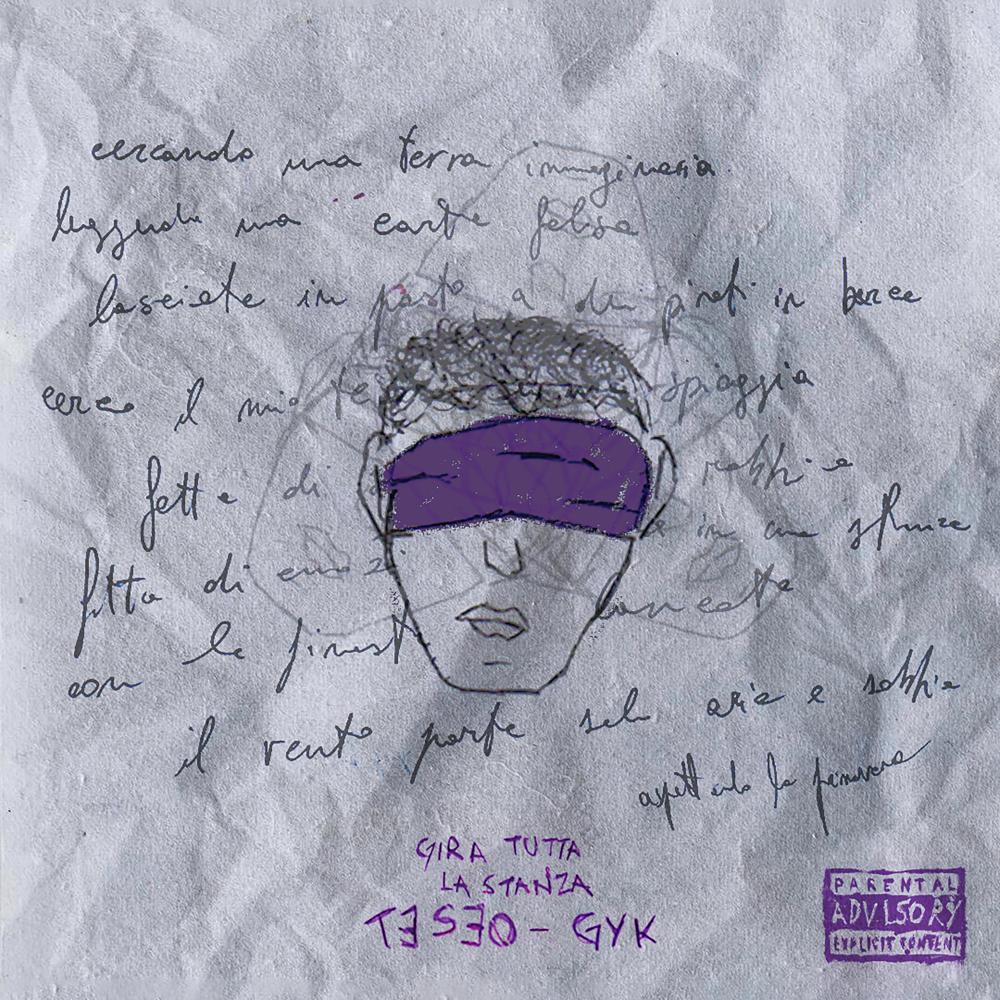 cercando una terra immaginaria
leggendo una carta falsa
lasciate in pasto a dei pirati in barca
cerco il mio spiaggia
fatta di rabbia
fatta di in una
con la
il vento porta solo aria e sabbia
aspettando la primavera
GIRA TUTTA
LA STANZA
TESEO - GYK
PARENTAL
ADVISORY
EXPLICIT CONTENT